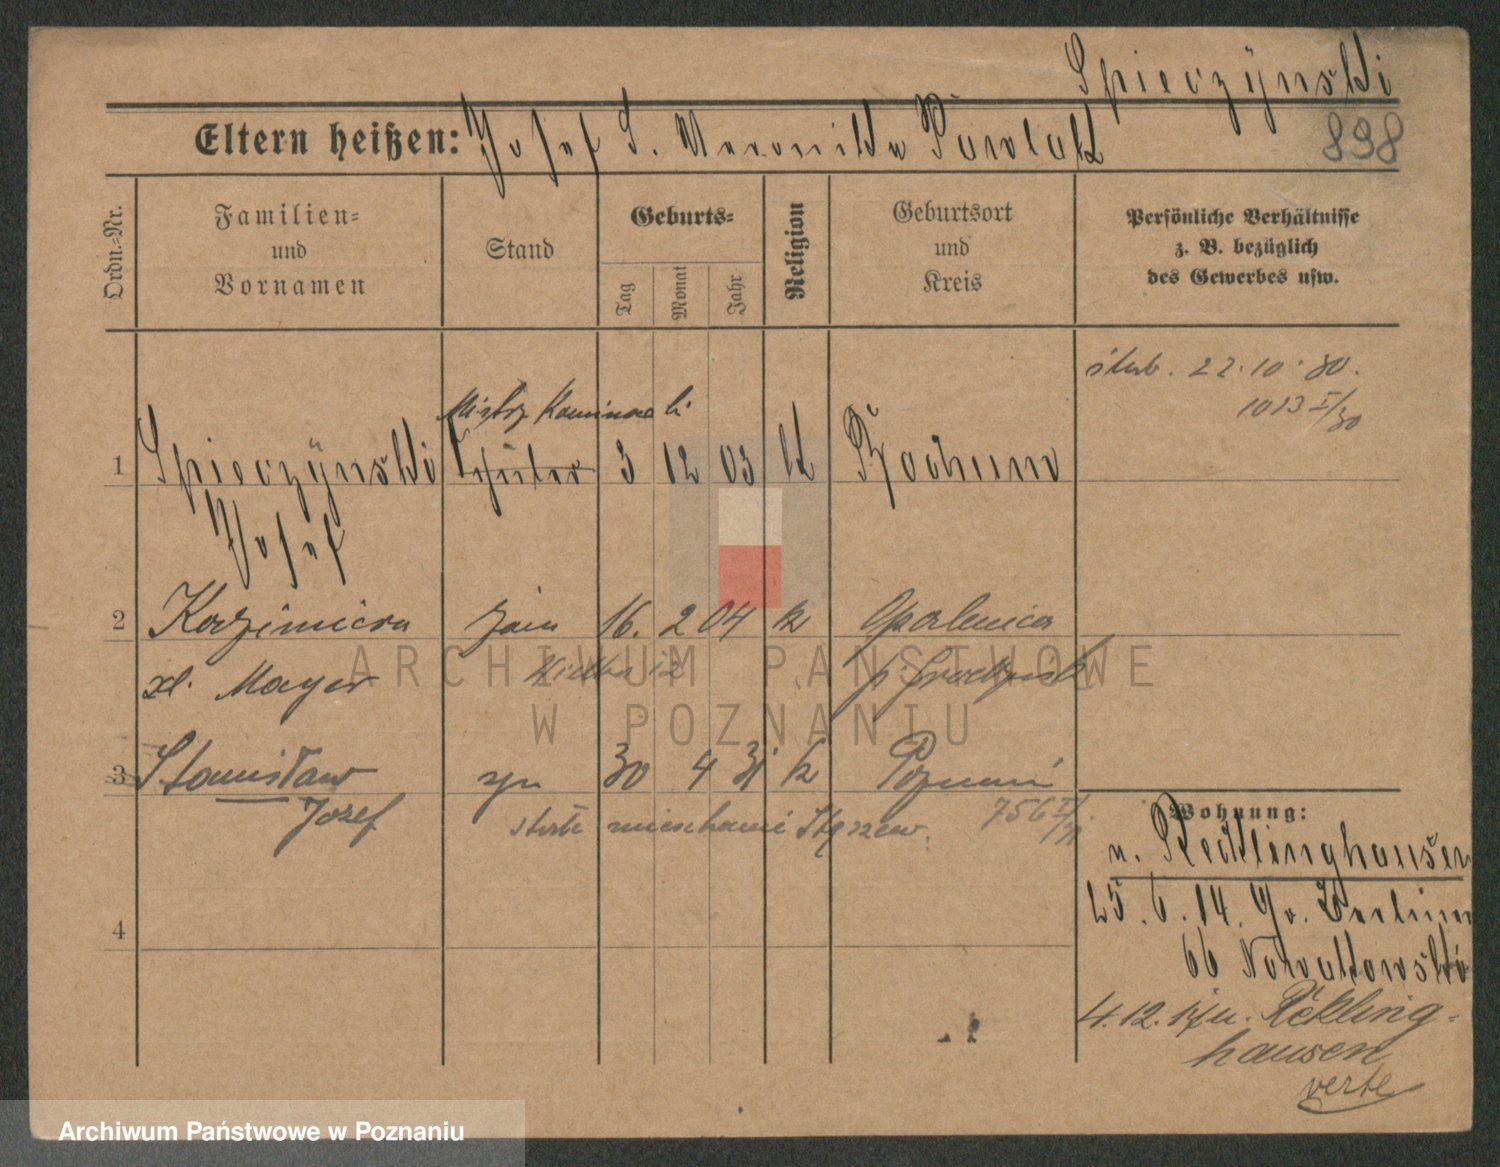 Spieczÿnski
Eltern heißen: Josef S. Veronika Pawlak
898
Ordn.-Nr.
Familien-
und
Vornamen
Stand
Geburts-
Tag
Monat
Jahr
Religion
Geburtsort
und
Kreis
Persönliche Verhältnisse
z. B. bezüglich
des Gewerbes usw.
ślub. 22.10.30.
1013 I/30
Mistrz Kominiarski
1 Spieczÿnski Schüler 3 12 03 k Bochum
Josef
2 Kazimiera żona 16. 2 04 k Opalenica
zd. Mayer
3 Stanisław syn 30 4 31 k Poznań
Józef
756
Wohnung:
v. Recklinghausen
25. 6. 14. Gr. Berliner
66 Nowakowski
4
4.12.17 n. Rekling-
hausen
verte
ARCHIWUM PAŃSTWOWE
W POZNANIU
Archiwum Państwowe w Poznaniu